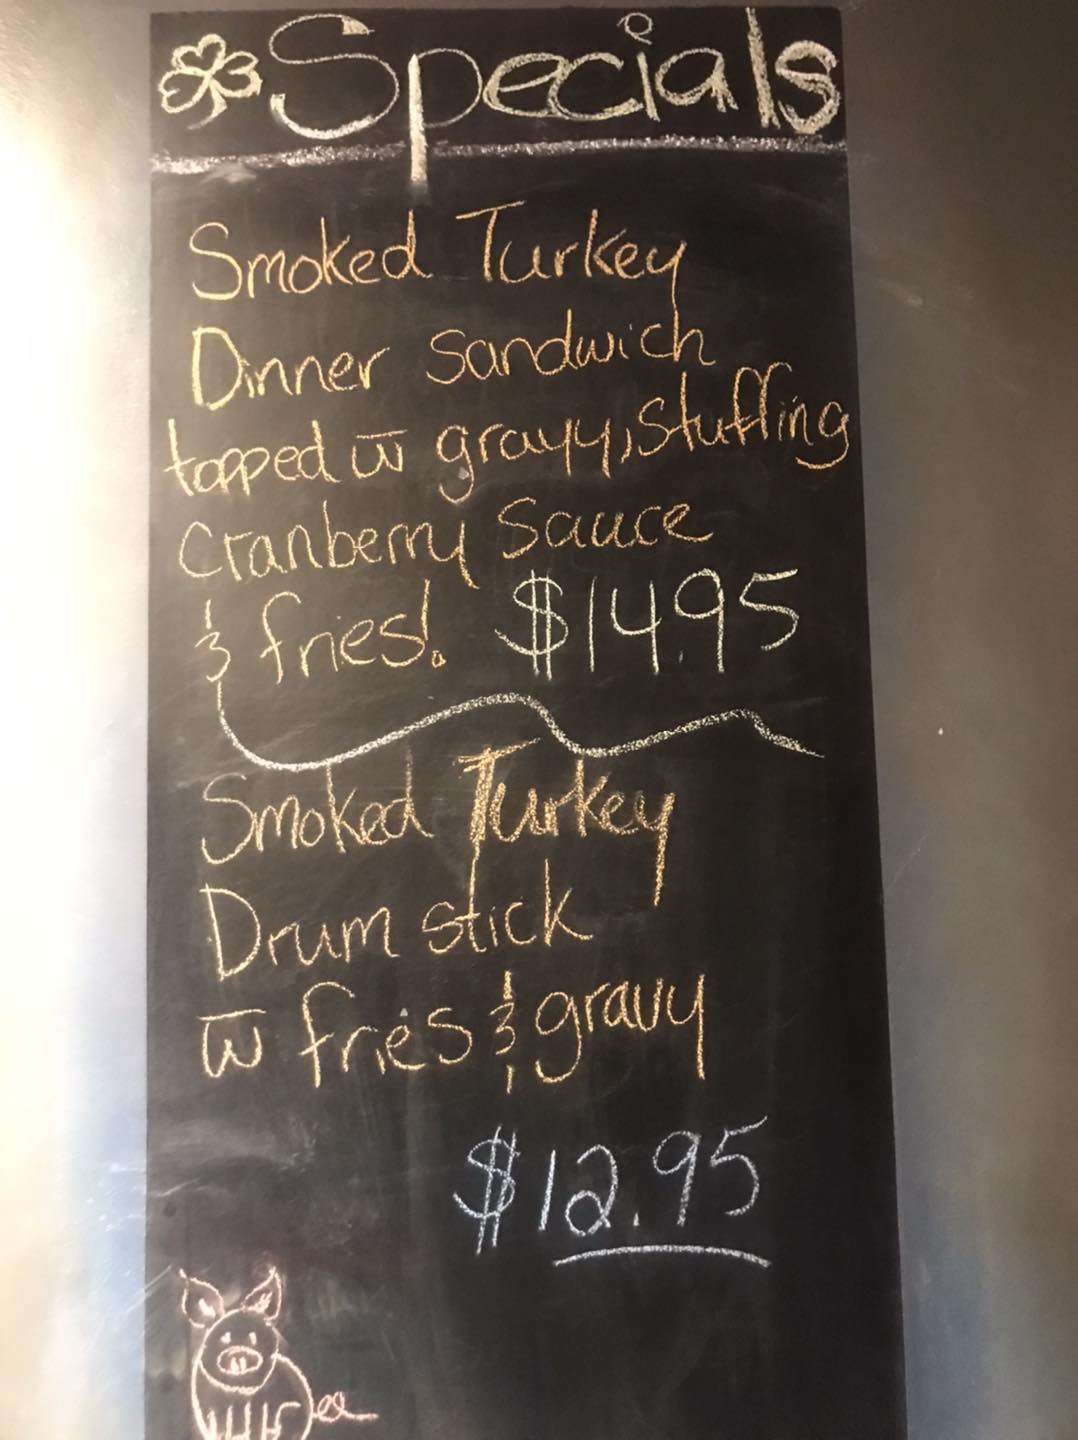 Specials
Smoked Turkey
Dinner Sandwich
topped w̅ gravy, Stuffing
Cranberry Sauce
& fries! $14.95
Smoked Turkey
Drum stick
w̅ fries & gravy
$12.95